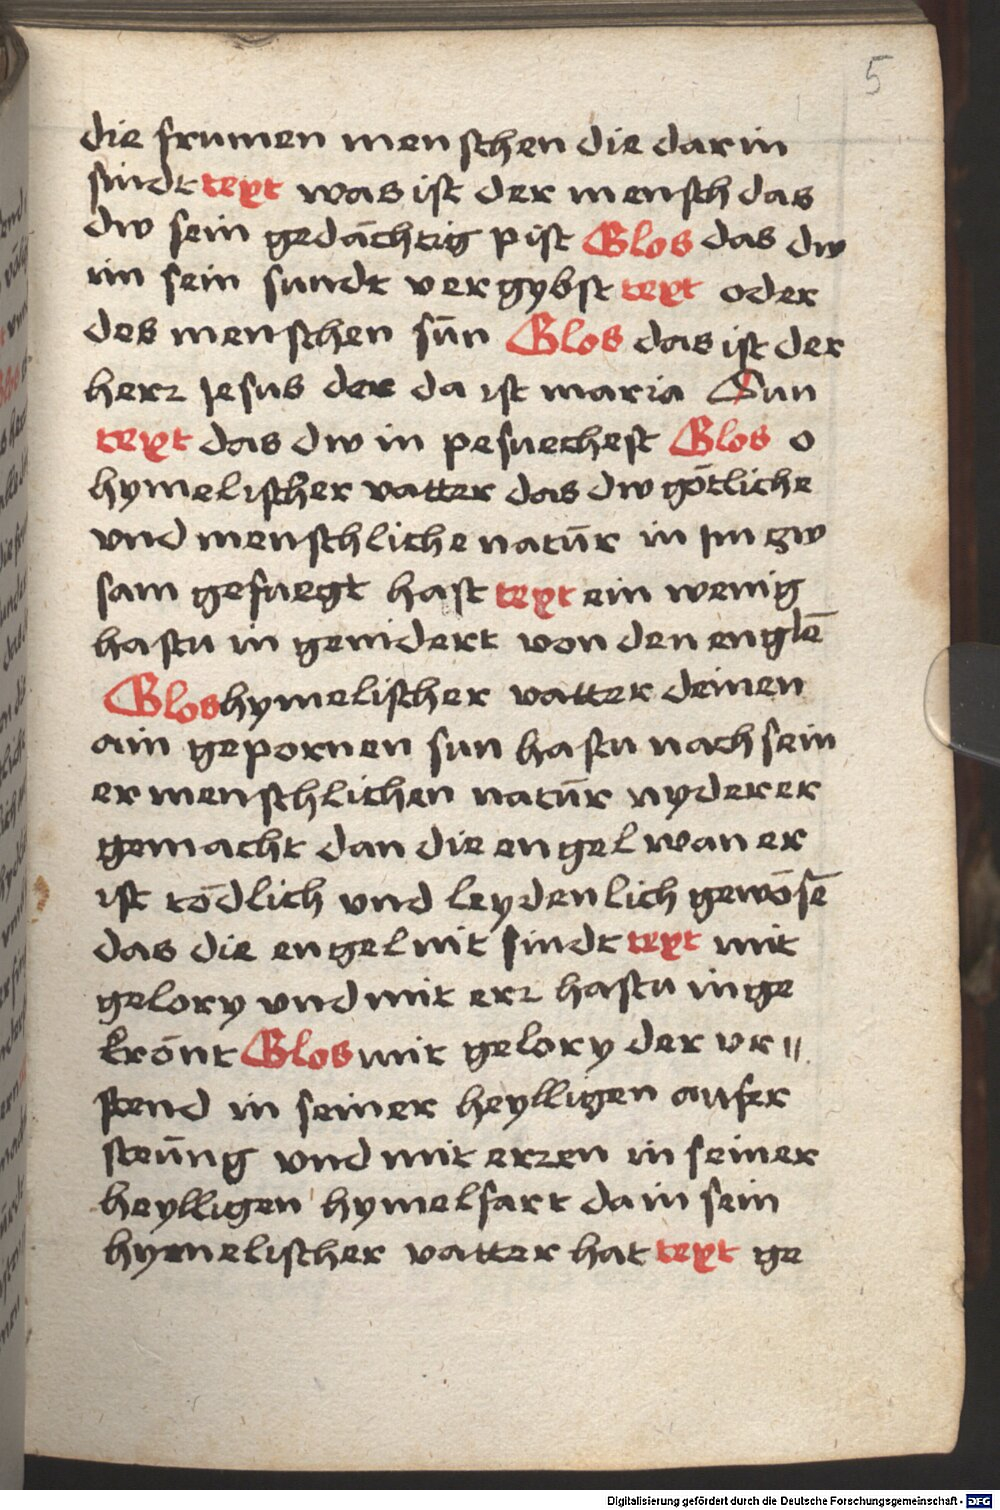 5
die frumen menschen die darin
sindt text was ist der mensch das
dw sein gedächtig pist Glos das dw
im sein sundt vergybst text oder
des menschen sūn Glos das ist der
herz Jesus der da ist maria Sun
text das dw in pesuechest Glos o
hymelischer vatter das dw götliche
vnd menschliche natūr in Im zw
sam gefuegt hast text ein wenig
hastu in genidert von den englē
Glos hymelischer vatter deinen
ain gepornen sun hastu nach sein
er menschlichen natūr nyderer
gemacht dan die engel wan er
ist tödlich vnd leydenlich gewösē
das die engel nit sindt text mit
gelory vnd mit erz hastu in ge
krönt Glos mit gelory der vr〃
stend in seiner heylligen aufer
steūng vnd mit erzen in seiner
heylligen hymelfart da in sein
hymelischer vatter hat text ge
Digitalisierung gefördert durch die Deutsche Forschungsgemeinschaft - DFG